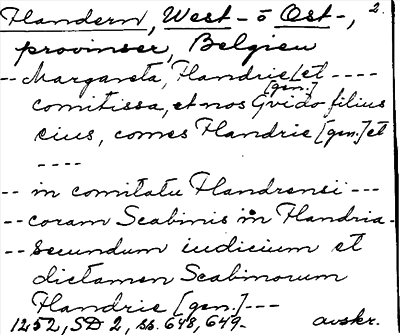 Flandern, West- o Ost-, 2.
provinser, Belgien
-- Margareta, Flandrie [et ----
[gen.]
comitissa, et nos Gvido filius
eius, comes Flandrie [gen.] et
----
-- in comitatu Flandrensi ---
-- coram Scabinis in Flandria -
-- secundum iudicium et
dictamen Scabinorum
Flandrie [gen.] ---
1252, SD 2, ss. 648, 649. avskr.